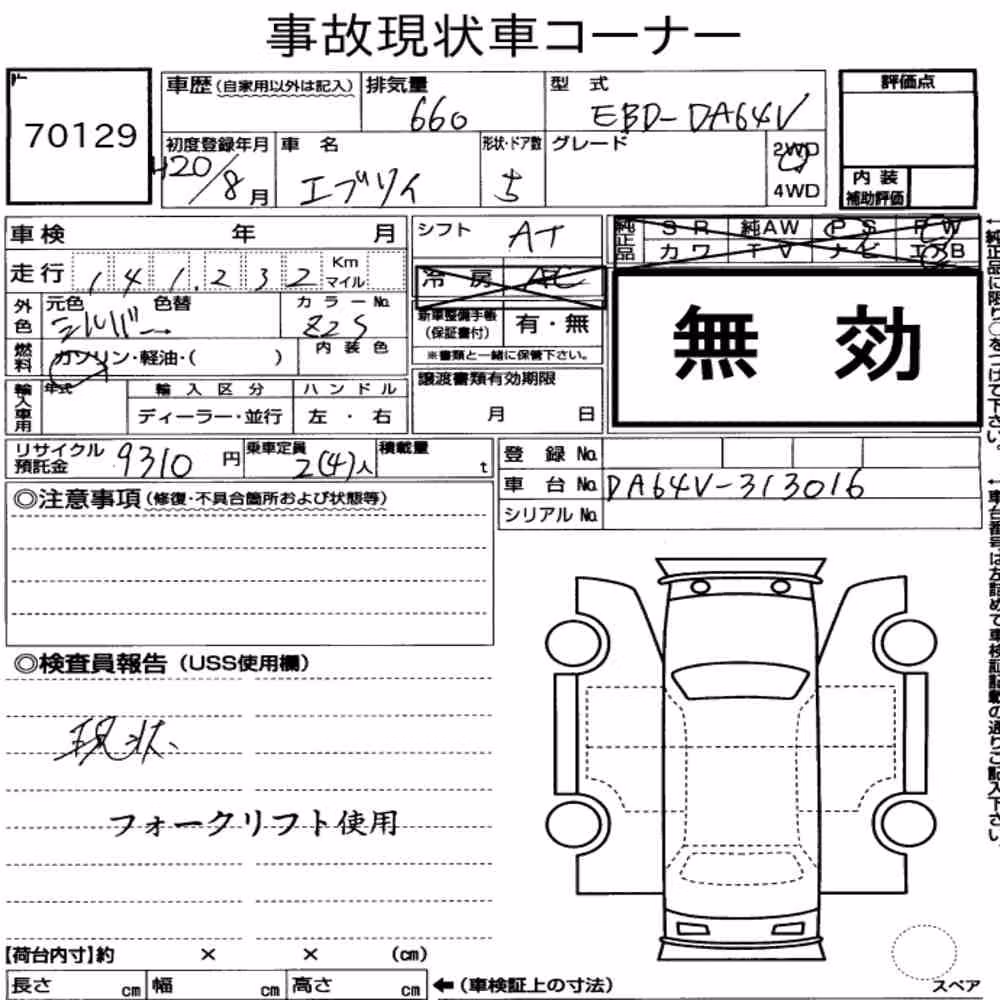 事故現状車コーナー
70129
車歴(自家用以外は記入) 排気量 660 型式 EBD-DA64V 評価点
初度登録年月 H20/8月 車名 エブリイ 形状・ドア数 5 グレード 2WD 4WD
内装補助評価
車検 年 月 シフト AT
純正品 SR 純AW PS PW
カワ TV ナビ エアB
走行 141,232 Km マイル 冷房 AC
外色 元色 シルバー 色替 カラーNo. Z2S 新車整備手帳(保証書付) 有・無
無効
燃料 ガソリン・軽油・( ) 内装色 ※書類と一緒に保管下さい。
輸入車用 年式 輸入区分 ハンドル 譲渡書類有効期限
ディーラー・並行 左・右 月 日
リサイクル預託金 9310円 乗車定員 2(4)人 積載量 t
登録No.
車台No. DA64V-313016
シリアルNo.
◎注意事項(修復・不具合箇所および状態等)
◎検査員報告(USS使用欄)
現状、
フォークリフト使用
【荷台内寸】約 × × (cm)
長さ cm 幅 cm 高さ cm ←(車検証上の寸法)
スペア
←純正品に限り○をつけて下さい。
←車台番号は左詰めで車検証記載の通りご記入下さい。